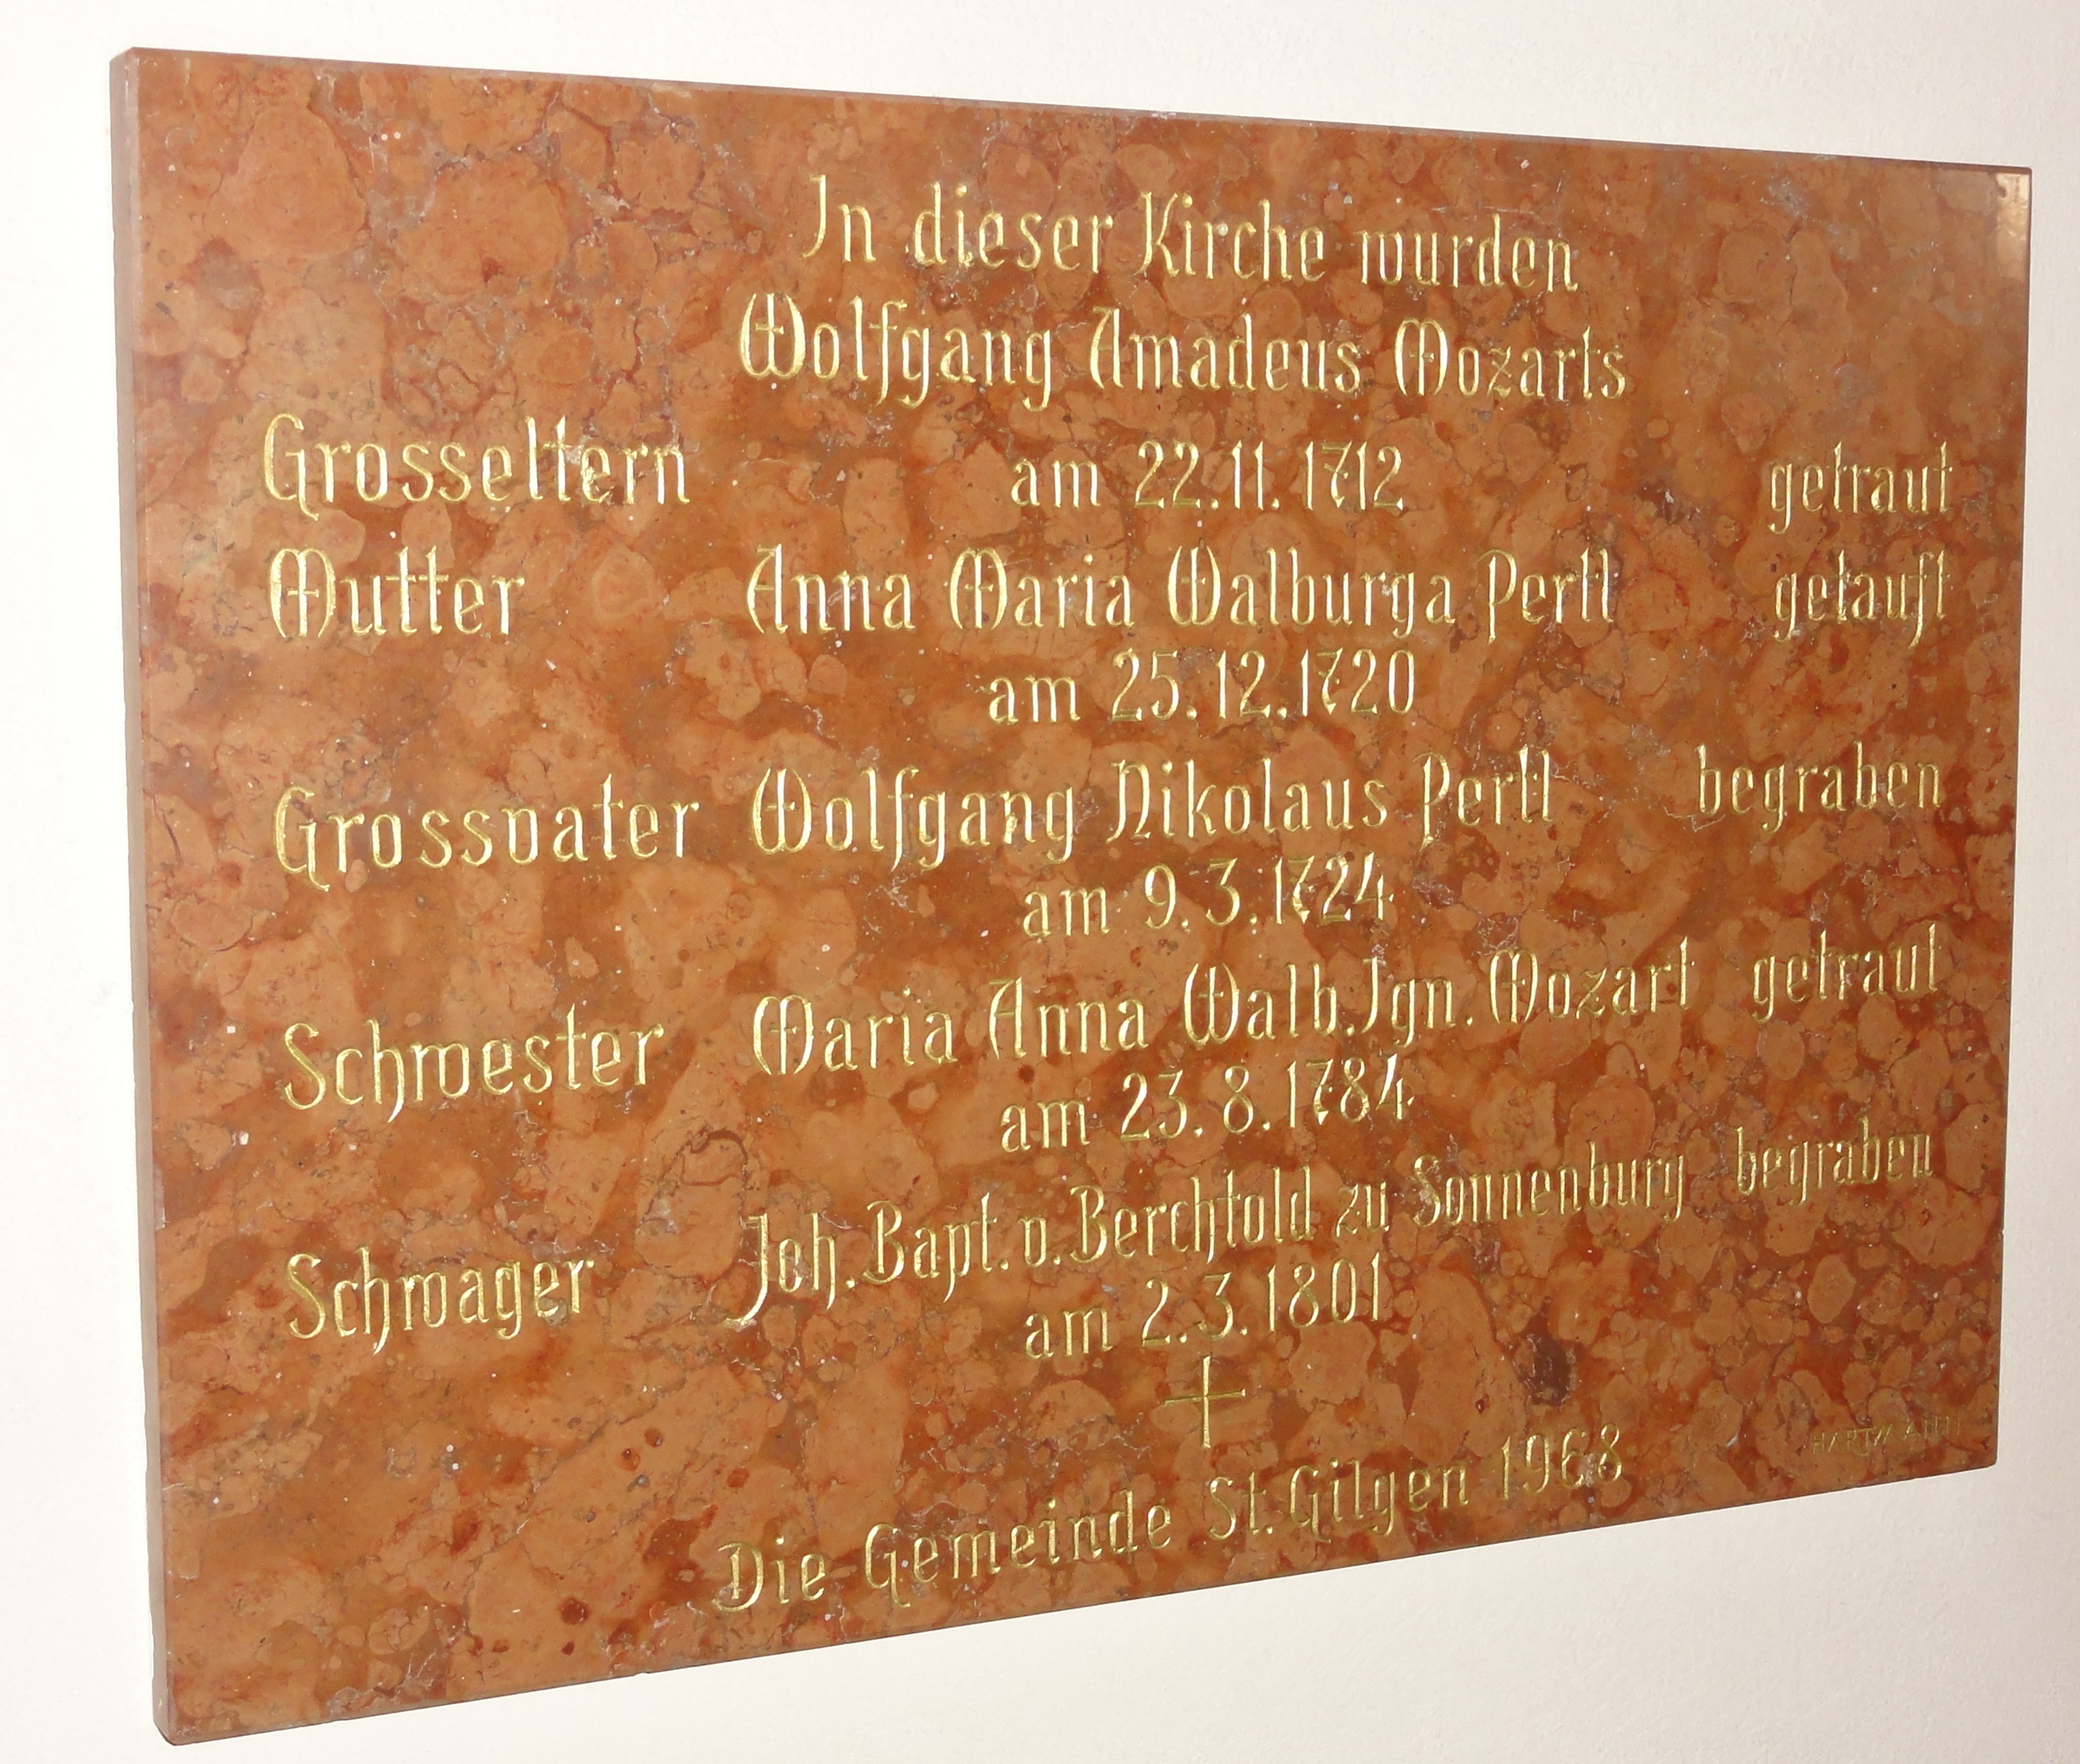 In dieser Kirche wurden
Wolfgang Amadeus Mozarts
Grosseltern am 22.11.1712 getraut
Mutter Anna Maria Walburga Pertl getauft
am 25.12.1720
Grossvater Wolfgang Nikolaus Pertl begraben
am 9.3.1724
Schwester Maria Anna Walb. Ign. Mozart getraut
am 23.8.1784
Schwager Joh. Bapt. v. Berchtold zu Sonnenburg begraben
am 2.3.1801
Die Gemeinde St. Gilgen 1968
HARTMANN